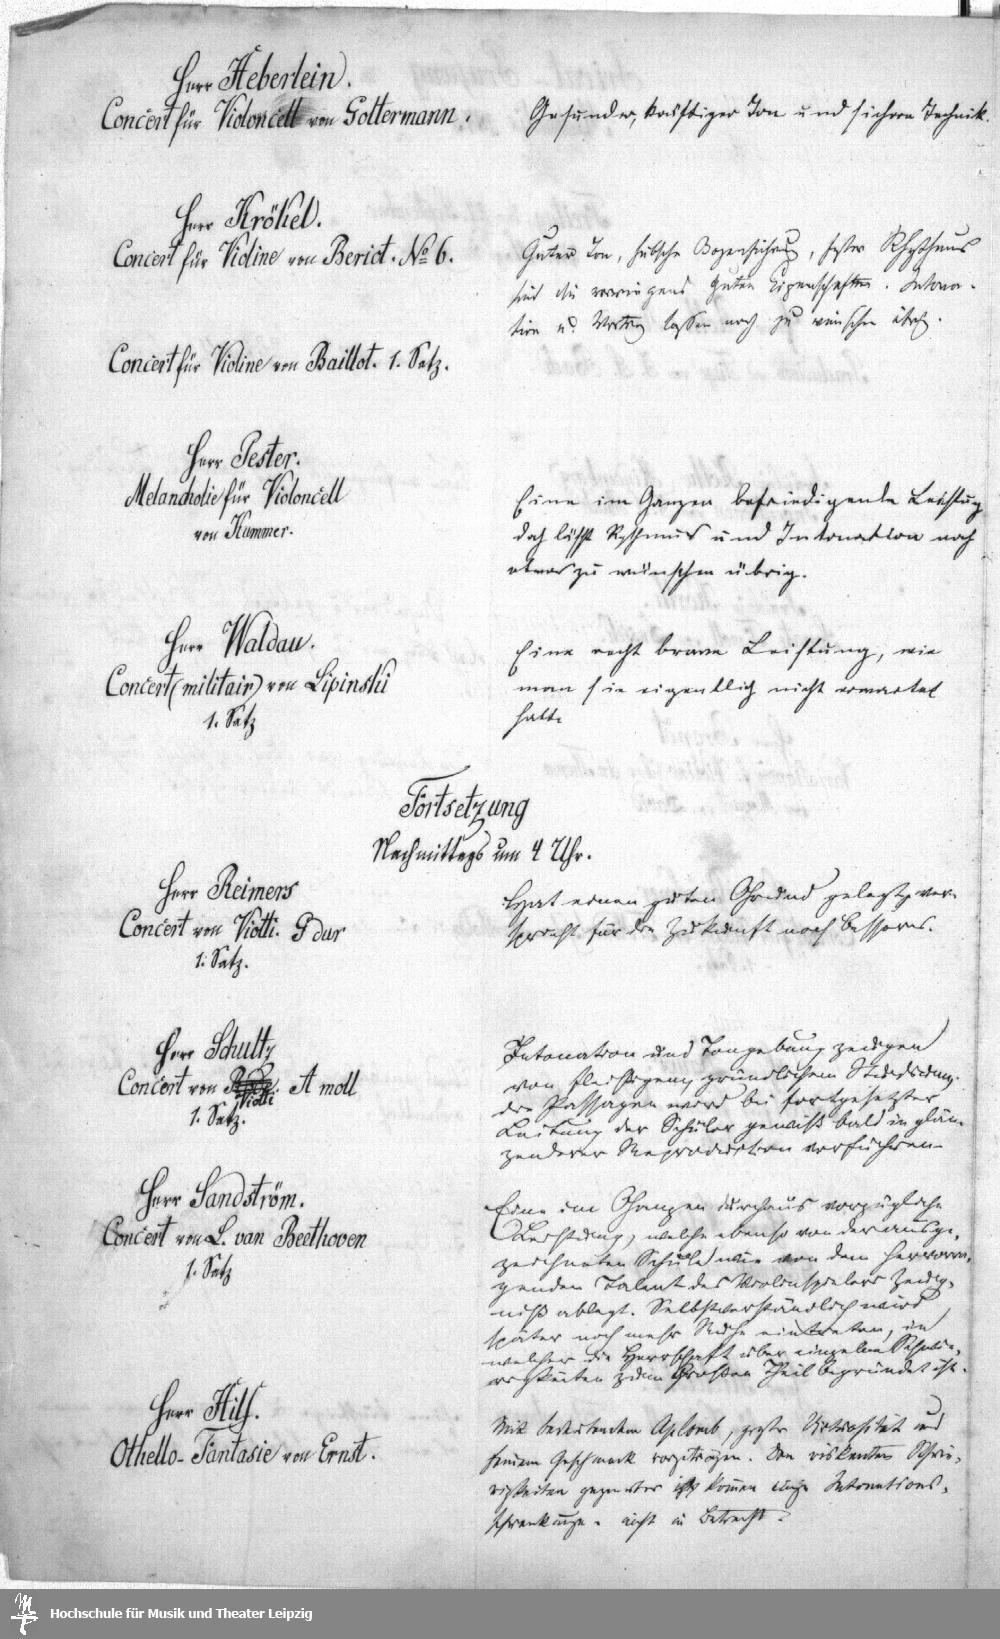 Herr Heberlein.
Concert für Violoncell von Goltermann.
Gesunder, kräftiger Ton und sichere Technik.
Herr Krökel.
Concert für Violine von Beriot. No 6.
Guter Ton, hübsche Bogenführung, fester Rhythmus
sind die guten Eigenschaften. Intona-
tion u. Vortrag lassen noch zu wünschen übrig.
Concert für Violine von Baillot. 1. Satz.
Herr Pester.
Melancholie für Violoncell
von Kummer.
Eine im Ganzen befriedigende Leistung
doch läßt Rythmus und Intonation noch
etwas zu wünschen übrig.
Herr Waldau.
Concert (militair) von Lipinski
1. Satz
Eine recht brave Leistung, wie
man sie eigentlich nicht erwartet
hatte
Fortsetzung
Nachmittags um 4 Uhr.
Herr Reimers
Concert von Viotti. G dur
1. Satz.
Hat einen guten Grund gelegt, ver-
spricht für die Zukunft noch besseres.
Herr Schultz
Concert von Viotti. A moll
1. Satz.
Intonation und Tongebung zeugen
von fleißigem, gründlichem Studium.
die Passagen wird bei fortgesetzter
Leitung der Schüler gewiß bald in glän-
zenderer Reproduction vorführen.
Herr Sandström.
Concert von L. van Beethoven
1. Satz
Eine im Ganzen durchaus vorzügliche
Leistung, welche ebenso von der ausge-
zeichneten Schule wie von dem hervorra-
genden Talent des Violinspielers Zeug-
niß ablegt. Selbstverständlich wird
später noch mehr Ruhe eintreten, in
welcher die Herrschaft über einzelne Schwie-
rigkeiten zum Großen Theil begründet ist.
Herr Hilf.
Othello-Fantasie von Ernst.
Mit bedeutendem Aplomb, großer Virtuosität und
feinem Geschmack vorgetragen. Den riskanten Schwie-
rigkeiten gegenüber kommen einige Intonations-
schwankungen nicht in Betracht.
Hochschule für Musik und Theater Leipzig